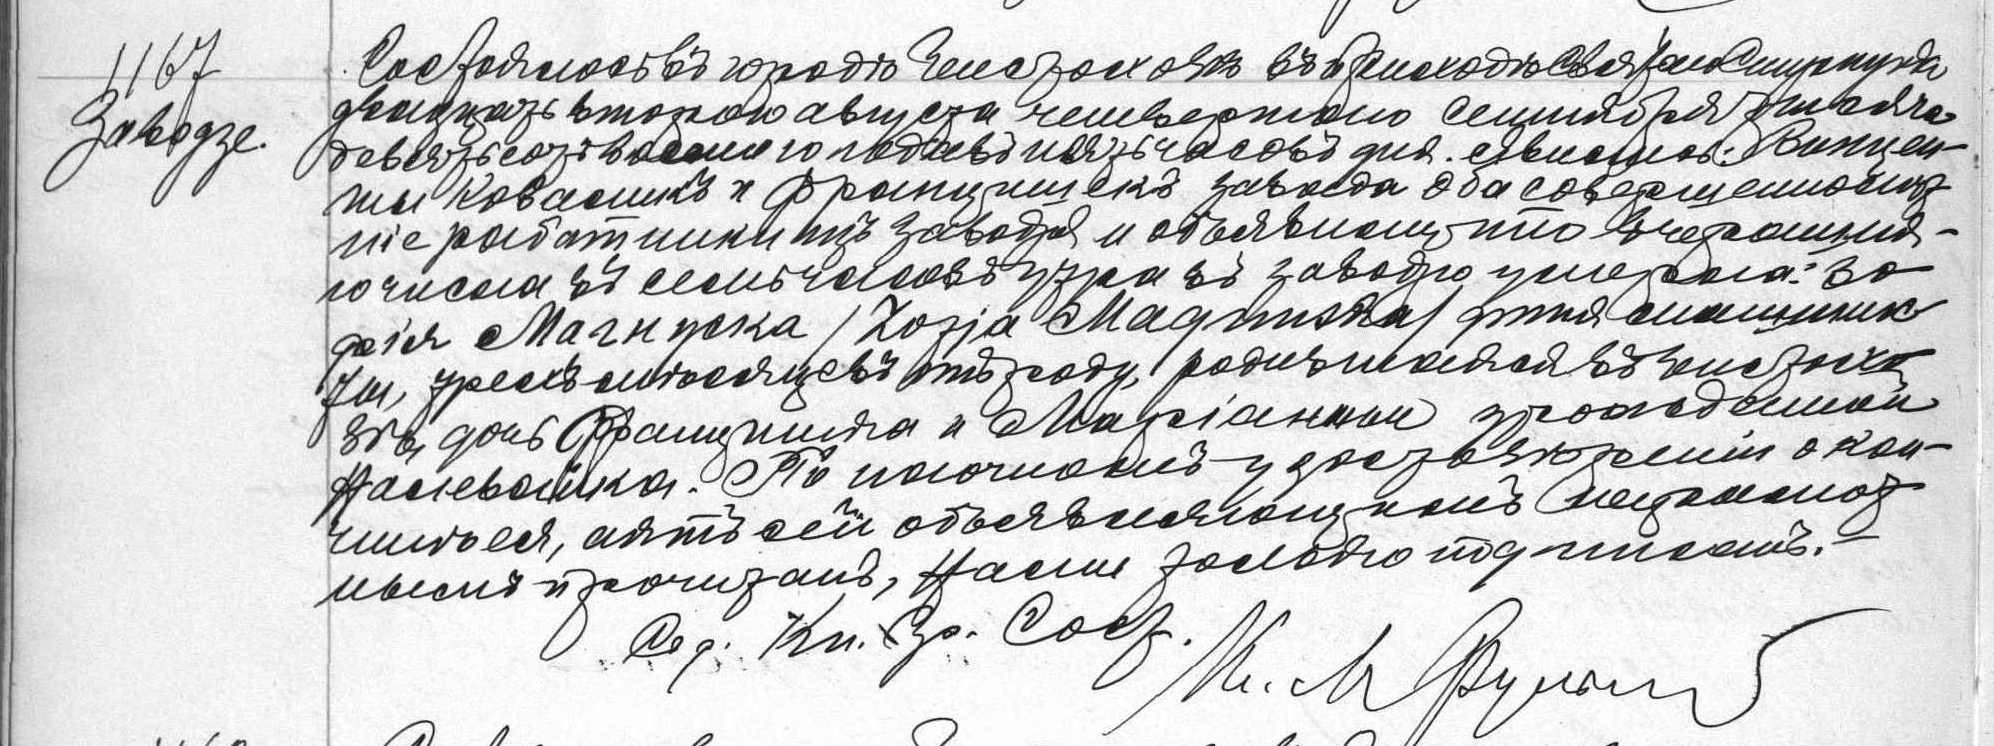 1167
Заводзе.
Состоялось въ городѣ Ченстоховѣ въ приходѣ Святаго Сигизмунда
двадцать втораго августа четвертаго сентября тысяча
девятьсотъ восьмого года въ пять часовъ дня. Явились: Винцен-
ты Коваликъ и Францишекъ Завада оба совершеннолѣт
ніе работники изъ Заводзя и объявили, что вчерашня-
го числа въ семь часовъ утра въ Заводзю умерла: Зо
фія Магнуска / Zofja Magnuska / дитя
ты, трехъ мѣсяцевъ отъ роду, родившаяся въ Ченстохо
вѣ, дочь Францишка и Маріанны урожденной
По наочномъ удостовѣреніи о кон-
чинѣ ея, актъ сей объявляющимъ неграмот
нымъ прочитанъ, Нами только подписанъ. —
Сод. Кн. Гр. Сост.
Кс. М